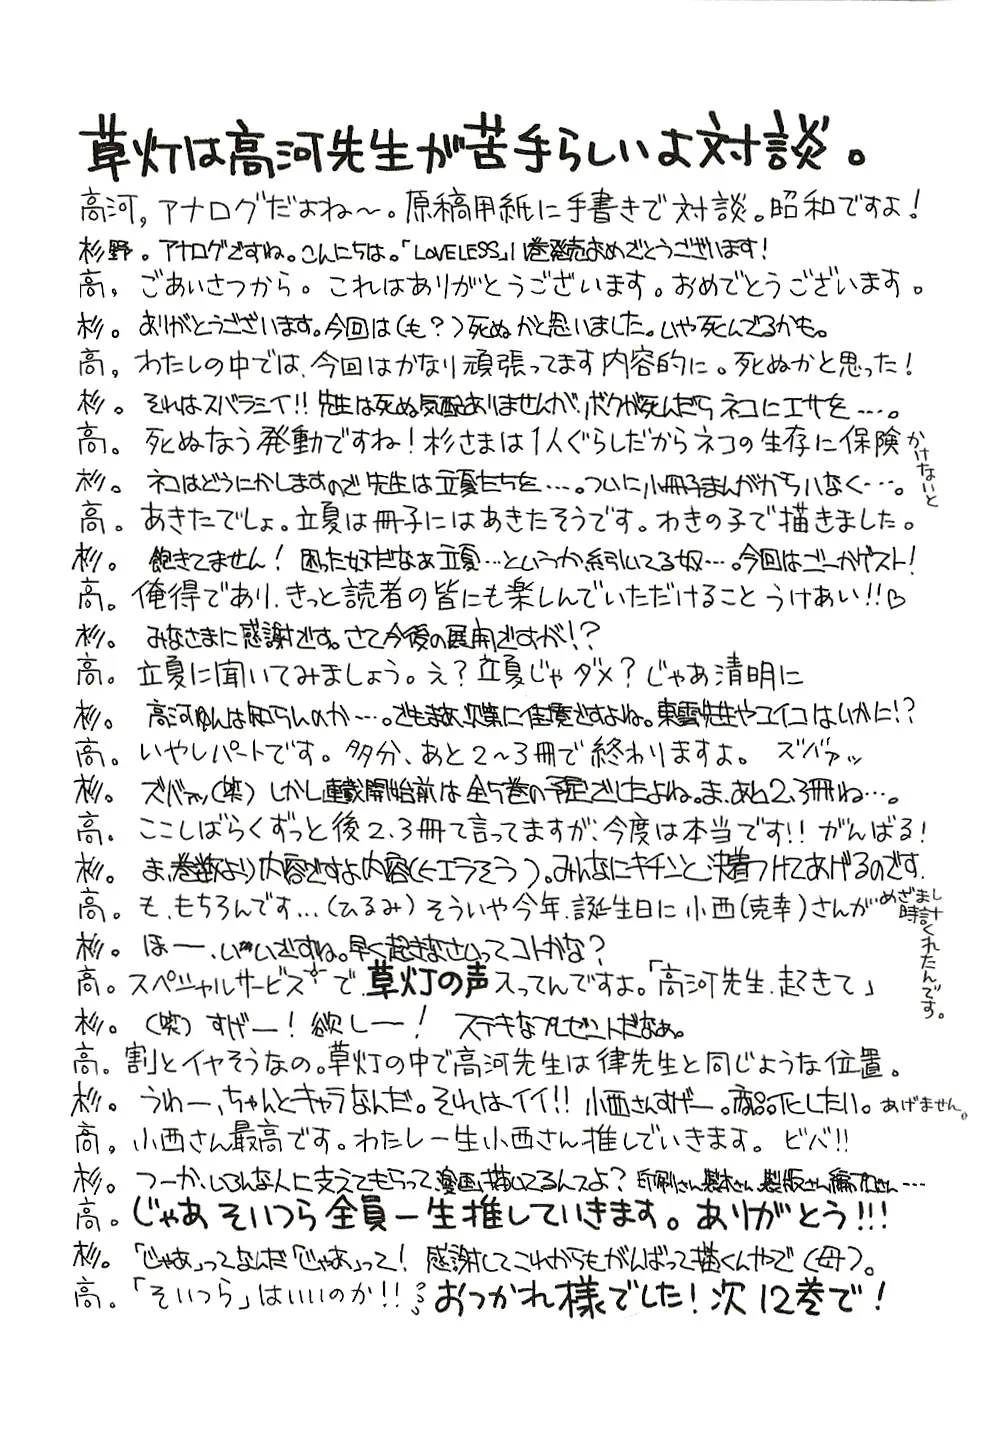 草灯は高河先生が苦手らしいよ対談。
高河, アナログだよね〜。原稿用紙に手書きで対談。昭和ですよ！
杉野。アナログですね。こんにちは。「LOVELESS」11巻発売おめでとうございます！
高, ごあいさつから。これはありがとうございます。おめでとうございます。
杉。ありがとうございます。今回は(も？)死ぬかと思いました。いや死んでるかも。
高, わたしの中では、今回はかなり頑張ってます内容的に。死ぬかと思った！
杉。それはスバラシイ!! 先生は死ぬ気配ありませんが、ボクが死んだらネコにエサを…。
高。死ぬなう発動ですね！杉さまは1人ぐらしだからネコの生存に保険かけないと
杉。ネコはどうにかしますので先生は立夏たちを…。ついに小冊子まんがが立夏じゃなく…。
高。あきたでしょ。立夏は冊子にはあきたそうです。わきの子で描きました。
杉。飽きてません！困った奴だなぁ立夏…というか糸引いてる奴…。今回はゴーカゲスト！
高。俺得であり、きっと読者の皆にも楽しんでいただけることうけあい!!♡
杉。みなさまに感謝です。さて今後の展開ですが!?
高。立夏に聞いてみましょう。え？立夏じゃダメ？じゃあ清明に
杉。高河ゆんは知らんのか…。でもまあ、次第に佳境ですよね。東雲先生やユイコはいかに!?
高。いやしパートです。多分、あと2〜3冊で終わりますよ。ズバァッ
杉。ズバァッ(笑) しかし連載開始前は全5巻の予定でしたよね。ま、あと2、3冊ね…。
高。ここしばらくずっと後2、3冊て言ってますが、今度は本当です!! がんばる！
杉。ま、巻数より内容ですよ内容(←エラそう)。みんなにキチンと決着つけてあげるのです。
高。も、もちろんです…(ひるみ) そういや今年、誕生日に小西(克幸)さんがめざまし時計くれたんです。
杉。ほー、いーいですね。早く起きなさいってコトかな？
高。スペシャルサービスで、草灯の声入ってんですよ。「高河先生、起きて」
杉。(笑) すげー！欲しー！ ステキなプレゼントだなぁ。
高。割とイヤそうなの。草灯の中で高河先生は律先生と同じような位置。
杉。うわー、ちゃんとキャラなんだ。それはイイ!! 小西さんすげー。商品化したい。あげません。
高, 小西さん最高です。わたし一生小西さん推していきます。ビバ!!
杉。つーか、いろんな人に支えてもらって、漫画描いてるんスよ？印刷さん製本さん製版さん編プロさん…
高。じゃあそいつら全員一生推していきます。ありがとう!!!
杉。「じゃあ」ってなんだ「じゃあ」って！感謝してこれからもがんばって描くんやで(母)。
高。「そいつら」はいいのか!! おつかれ様でした！次12巻で！